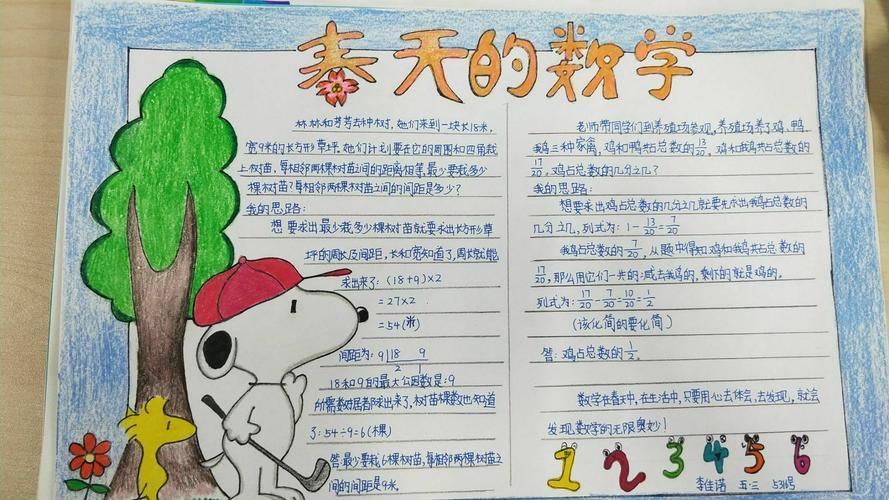 春天的数学
林林和芳芳去种树,她们来到一块长18米,
宽9米的长方形草坪。她们计划要在它的周围和四角栽
上树苗,每相邻两棵树苗之间的距离相等,最少要栽多少
棵树苗?每相邻两棵树苗之间的间距是多少?
我的思路:
想要求出最少栽多少棵树苗就要求出长方形草
坪的周长及间距,长和宽知道了,周长就能
求出来了:(18+9)×2
=27×2
=54(米)
间距为:9|18 9
2 1
18和9的最大公因数是:9
所需数据都求出来了,树苗棵数也知道
了:54÷9=6(棵)
答:最少要栽6棵树苗,每相邻两棵树苗之
间的间距是9米。
老师带同学们到养殖场参观,养殖场养了鸡、鸭、
鹅三种家禽,鸡和鸭共占总数的13/20,鸡和鹅共占总数的
17/20,鸡占总数的几分之几?
我的思路:
想要求出鸡占总数的几分之几就要先求出鹅占总数的
几分之几,列式为:1-13/20=7/20
鹅占总数的7/20,从题中得知鸡和鹅共占总数的
17/20,那么用它们一共的减去鹅的,剩下的就是鸡的。
列式为:17/20-7/20=10/20=1/2
(该化简的要化简)
答:鸡占总数的1/2。
数学在春天中,在生活中,只要用心去体会,去发现,就会
发现数学的无限奥妙!
1 2 3 4 5 6
李佳诺 五·三 53号